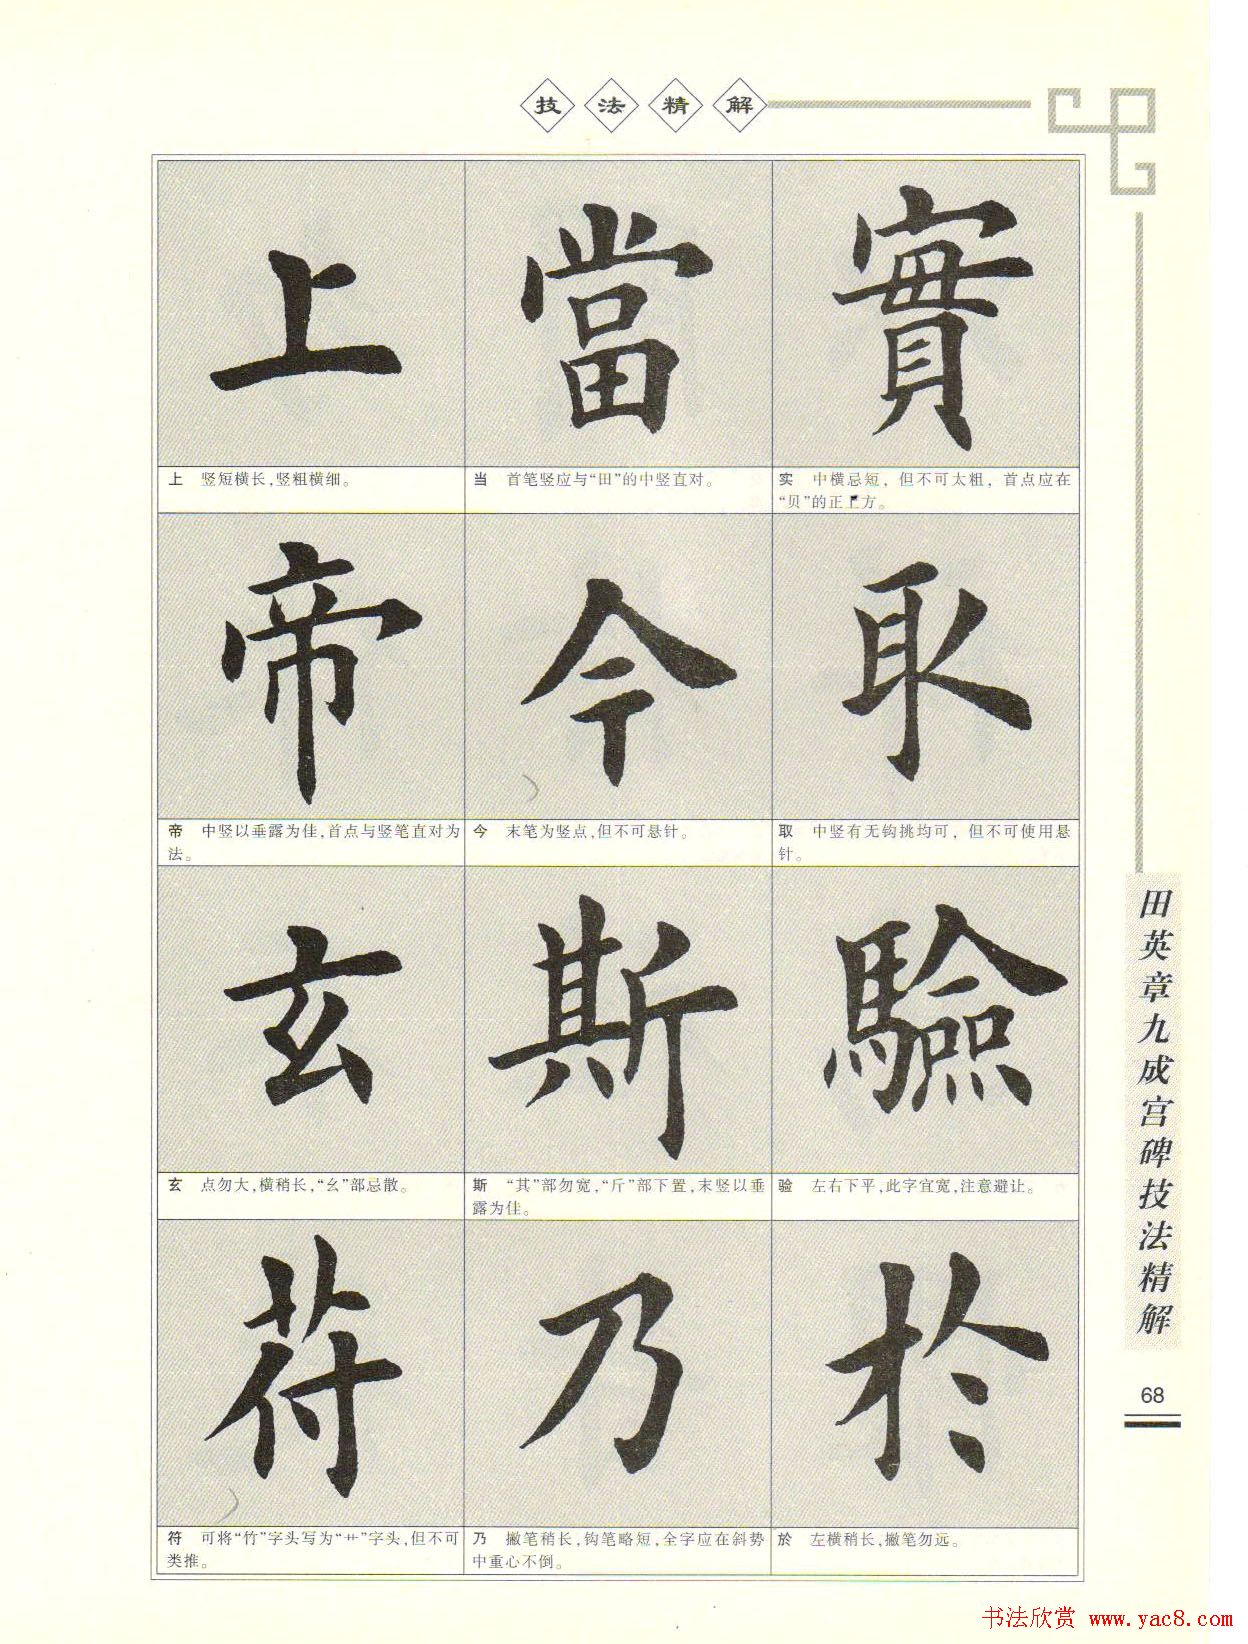 技法精解
上 當 實
上 竖短横长,竖粗横细。
当 首笔竖应与“田”的中竖直对。
实 中横忌短,但不可太粗,首点应在
“贝”的正上方。
帝 今 取
帝 中竖以垂露为佳,首点与竖笔直对为
法。
今 末笔为竖点,但不可悬针。
取 中竖有无钩挑均可,但不可使用悬
针。
玄 斯 驗
玄 点勿大,横稍长,“幺”部忌散。
斯 “其”部勿宽,“斤”部下置,末竖以垂
露为佳。
验 左右下平,此字宜宽,注意避让。
符 乃 於
符 可将“竹”字头写为“艹”字头,但不可
类推。
乃 撇笔稍长,钩笔略短,全字应在斜势
中重心不倒。
於 左横稍长,撇笔勿远。
田英章九成宫碑技法精解
68
书法欣赏 www.yac8.com